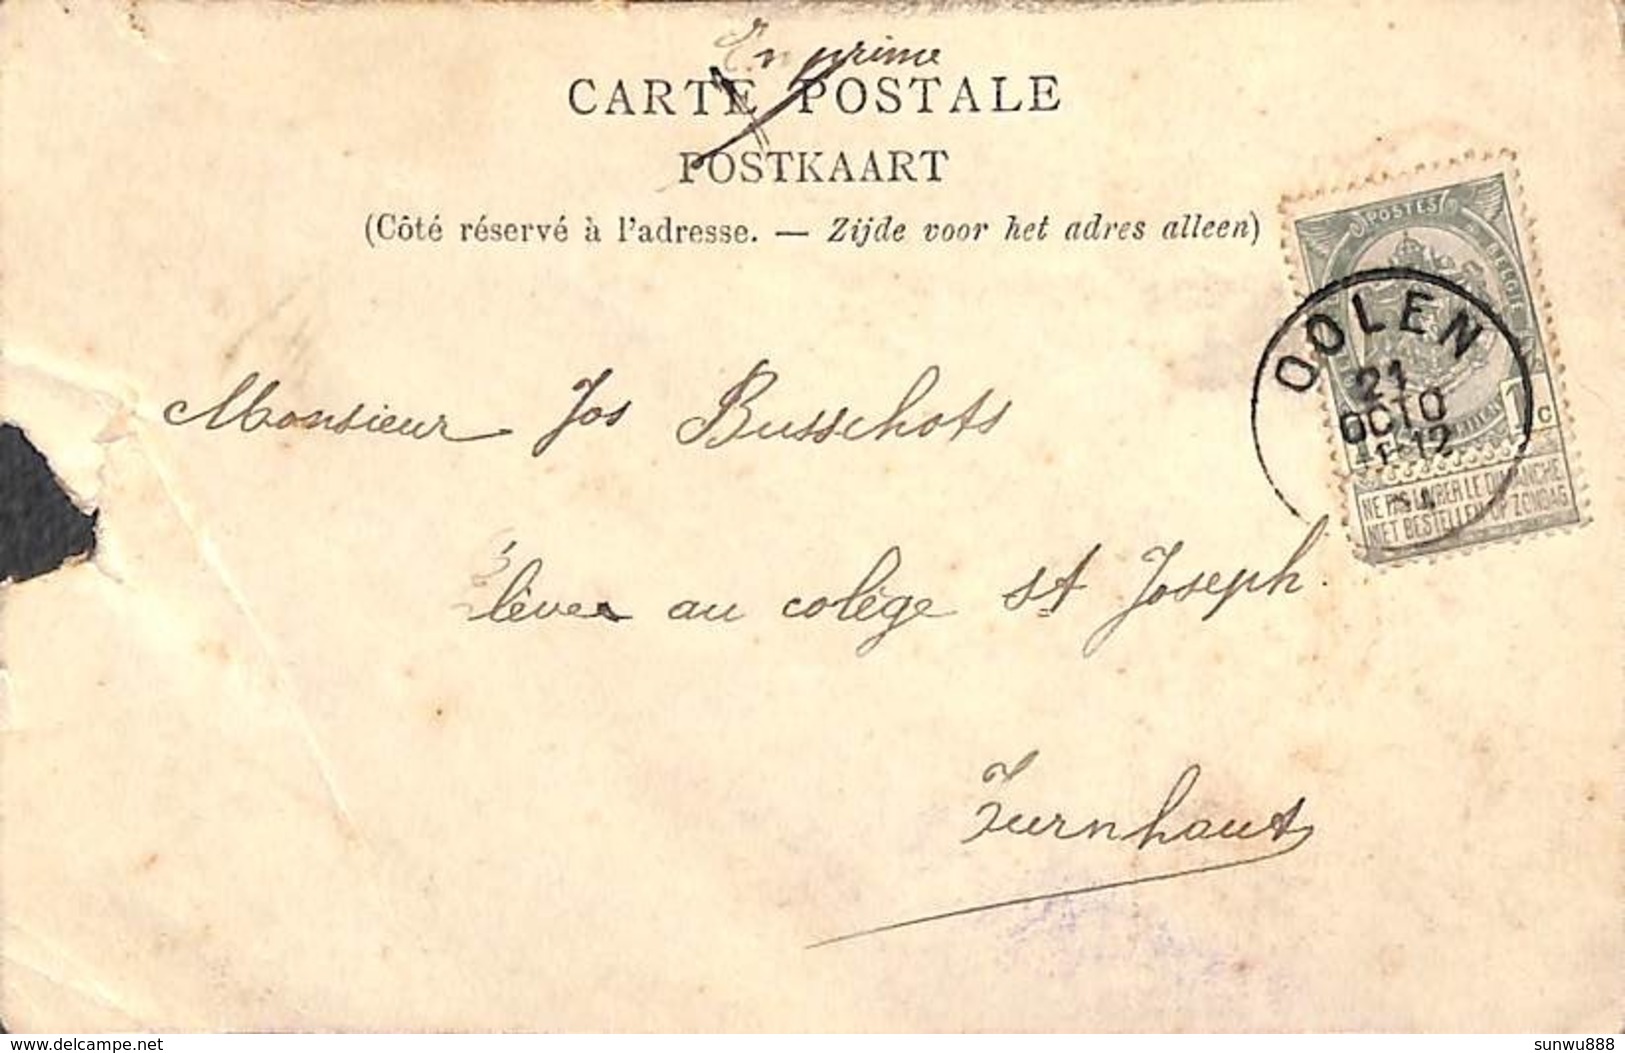 Emprime
CARTE POSTALE
POSTKAART
(Côté réservé à l'adresse. — Zijde voor het adres alleen)
POSTES
BELGIE
1 c
NE PAS LIVRER LE DIMANCHE
NIET BESTELLEN OP ZONDAG
OOLEN
21
OCTO
12
Monsieur Jos Busschots
Élève au colège st Joseph.
Turnhout
delcampe.net
sunwu888